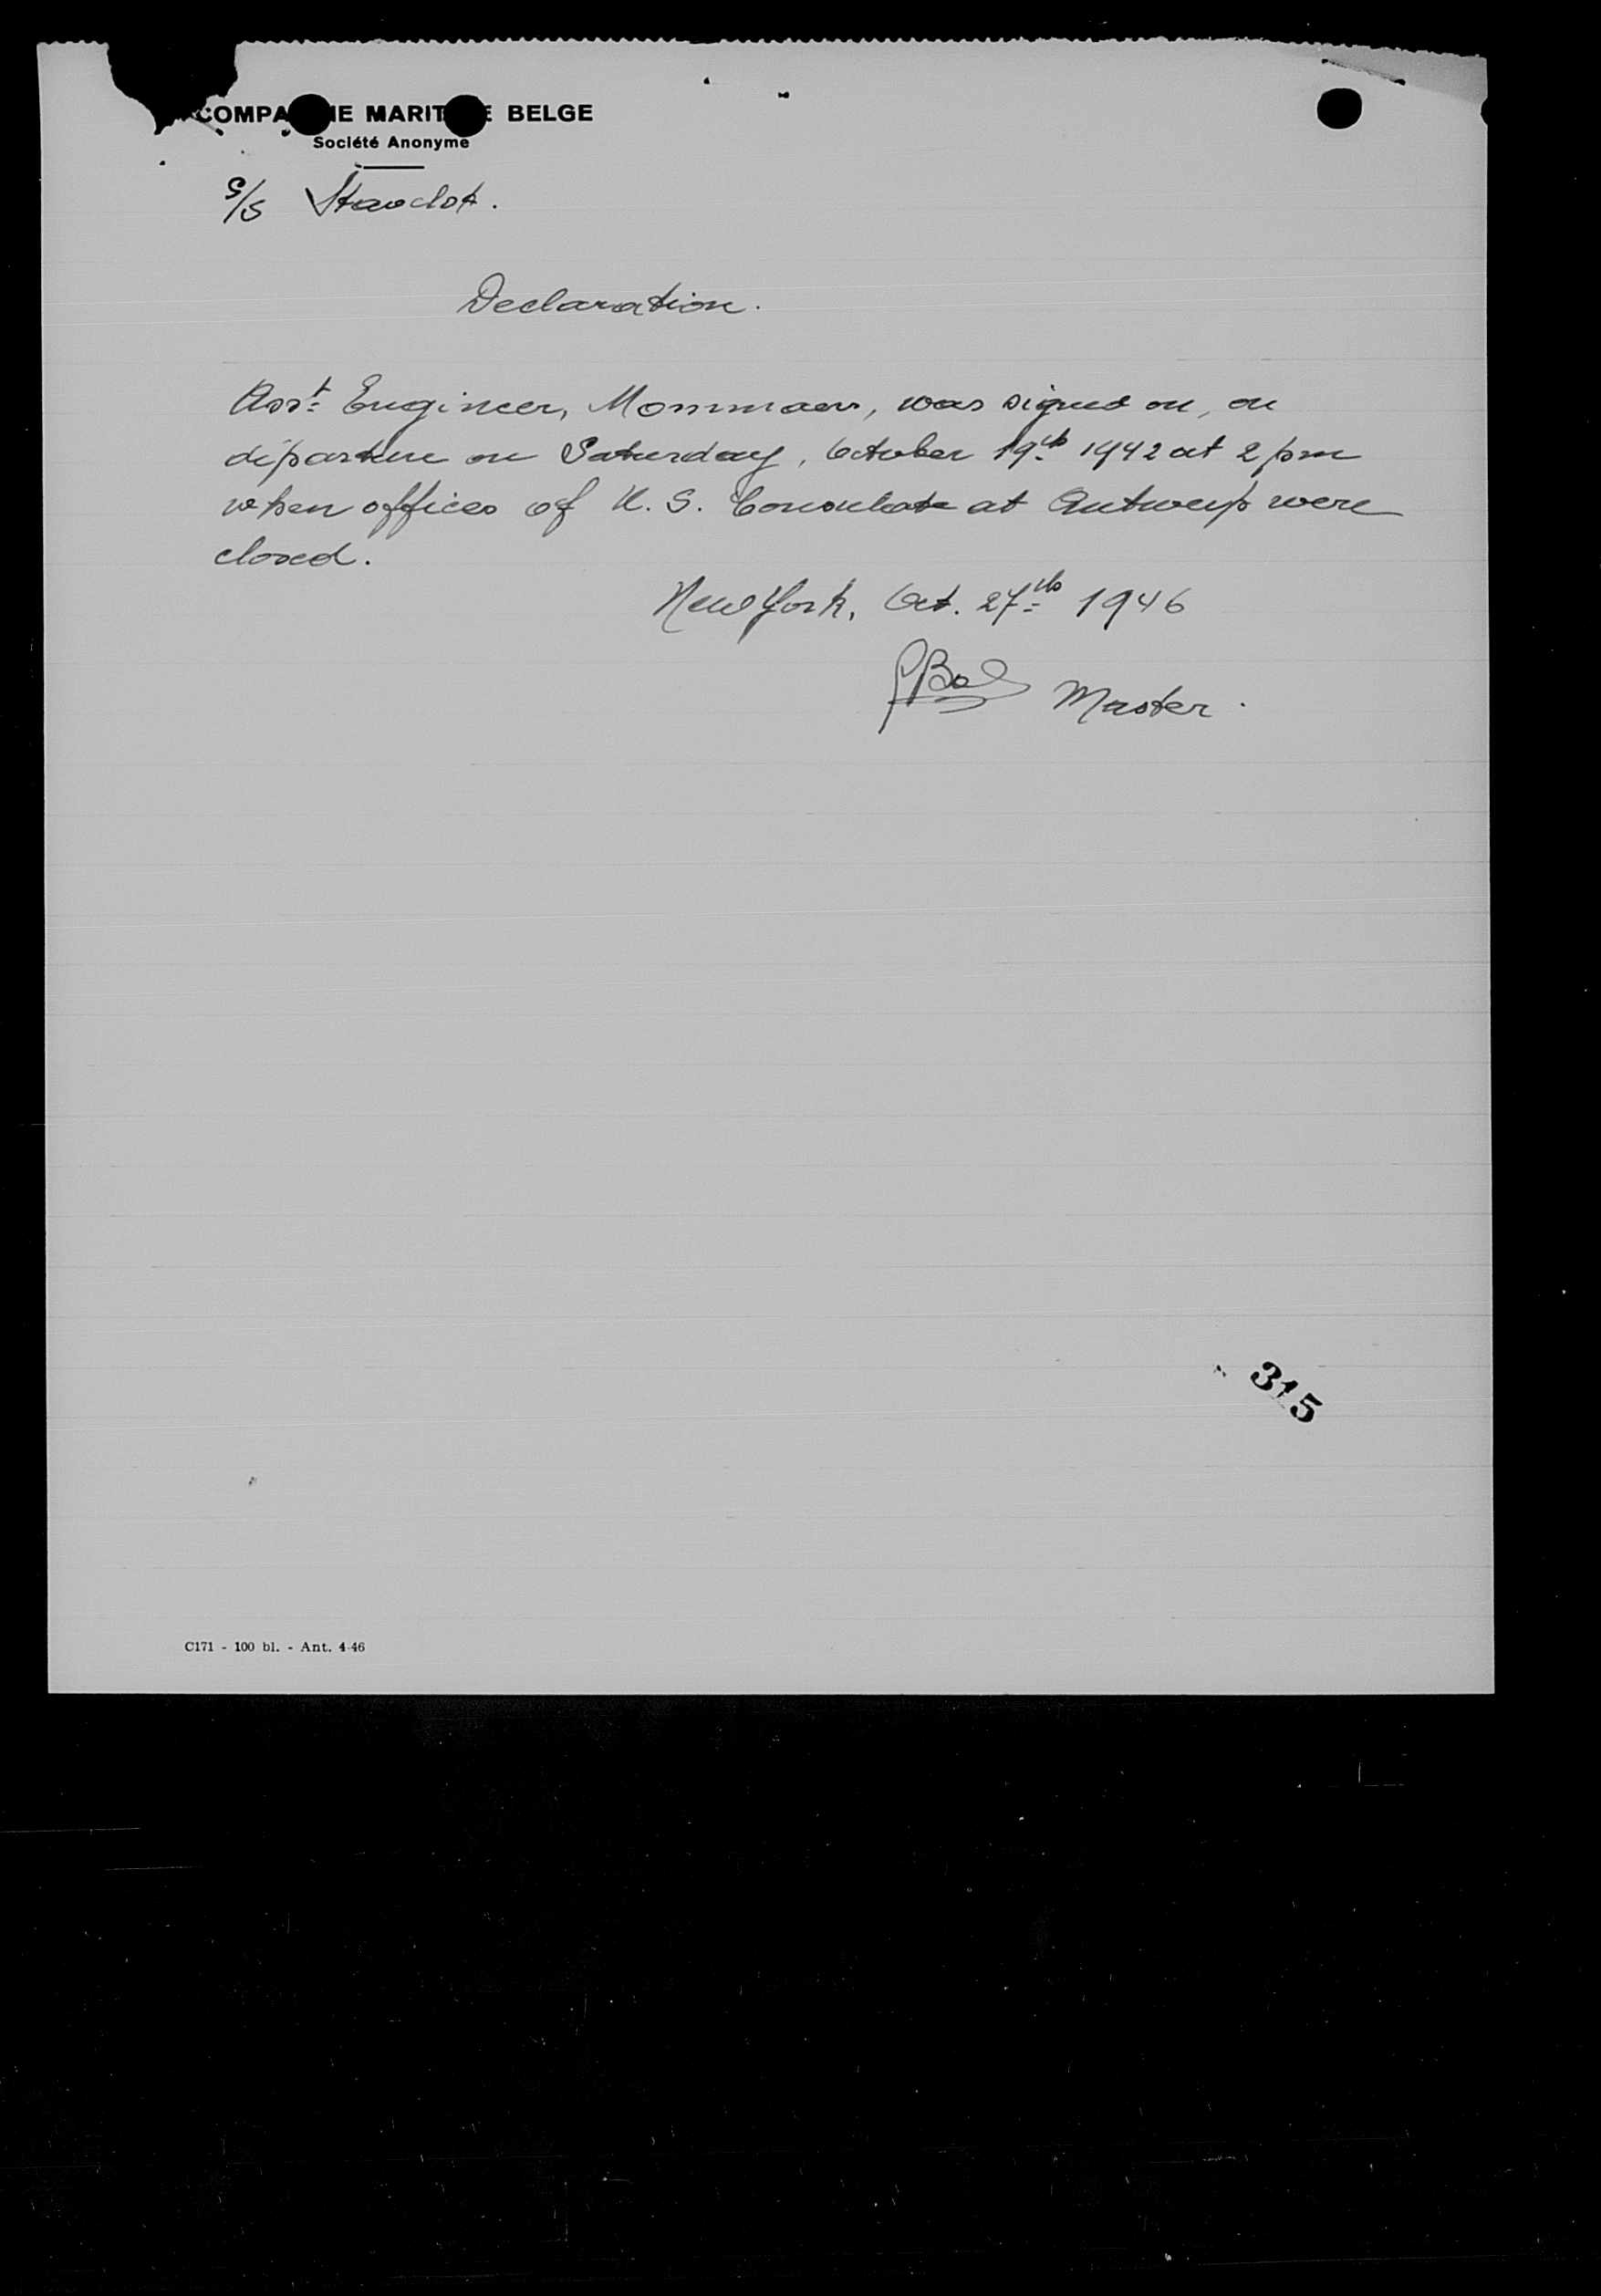 COMPA IE MARIT E BELGE
Société Anonyme
S/S Stavelot.
Declaration.
Asst Engineer, Mommaers, was signed on, on
departure on Saturday, October 19th 1942 at 2 pm
when offices of U. S. Consulate at Antwerp were
closed.
New York, Oct. 27th 1946
Master.
315
C171 - 100 bl. - Ant. 4-46